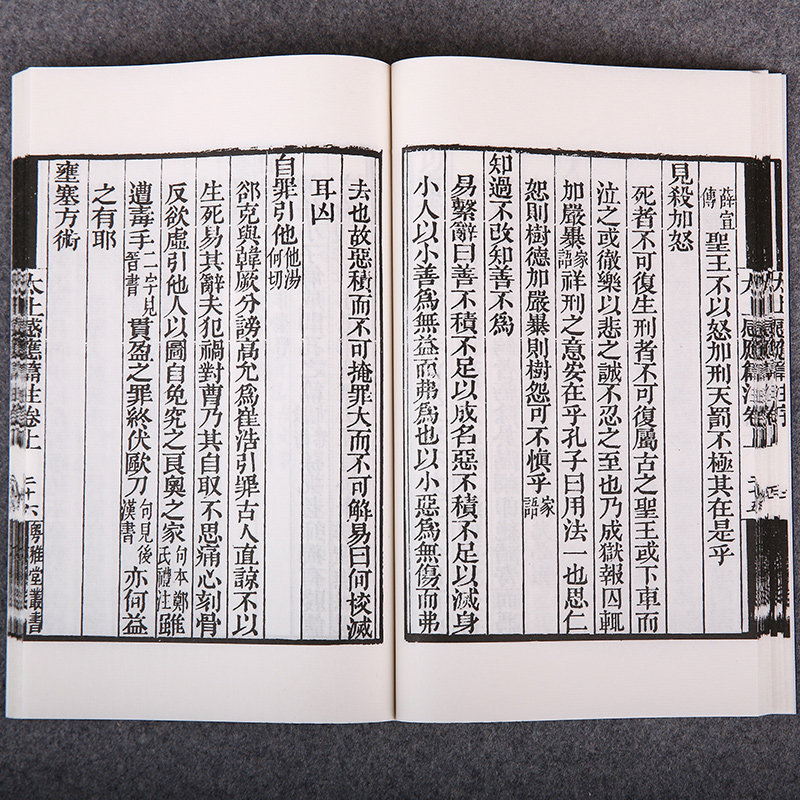 薛宣傳聖王不以怒加刑天罰不極其在是乎
見殺加怒
死者不可復生刑者不可復屬古之聖王或下車而
泣之或徹樂以悲之誠不忍之至也乃成獄報囚輒
加嚴暴家語祥刑之意安在乎孔子曰用法一也思仁
恕則樹德加嚴暴則樹怨可不愼乎家語
知過不改知善不爲
易繫辭曰善不積不足以成名惡不積不足以滅身
小人以小善爲無益而弗爲也以小惡爲無傷而弗
去也故惡積而不可掩罪大而不可解易曰何校滅
耳凶
自罪引他他湯何切
郤克與韓厥分謗高允爲崔浩引罪古人直諒不以
生死易其辭夫犯禍對曹乃其自取不思痛心刻骨
反欲虛引他人以圖自免究之艮奧之家句本鄭氏禮注雖
遭毒手二字見晉書貫盈之罪終伏歐刀句見後漢書亦何益
之有耶
壅塞方術
太上感應篇注卷上
二十六
粤雅堂叢書